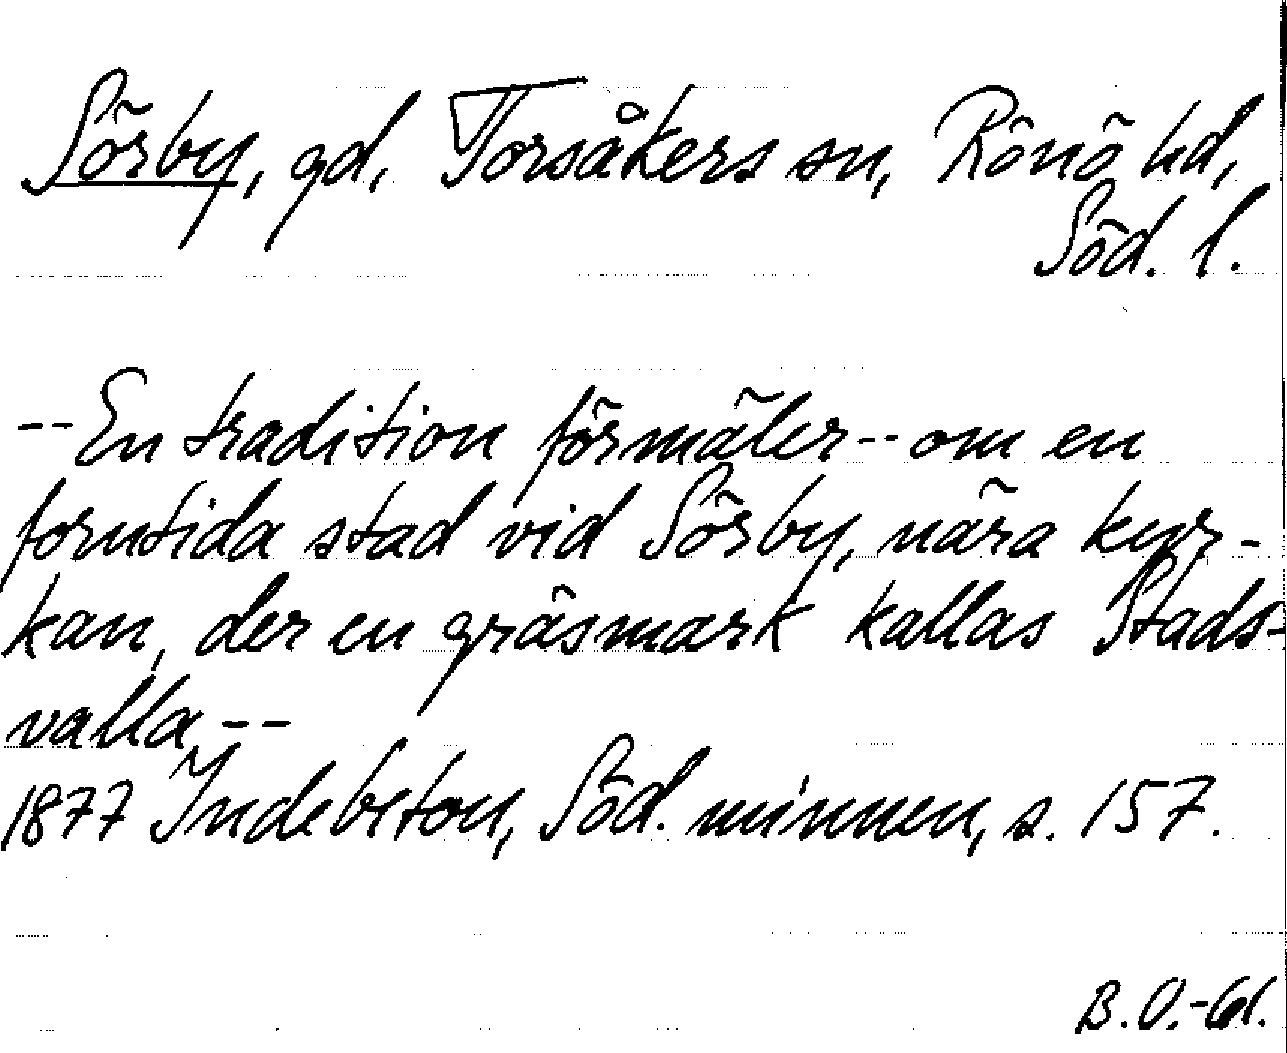 Sörby, gd, Torsåkers sn, Rönö hd,
Söd. l.
-- En tradition förmäler -- om en
forntida stad vid Sörby, nära kyr-
kan, der en gräsmark kallas Stads-
valla --
1877 Indebetou, Söd. minnen, s. 157.
B.O.-61.